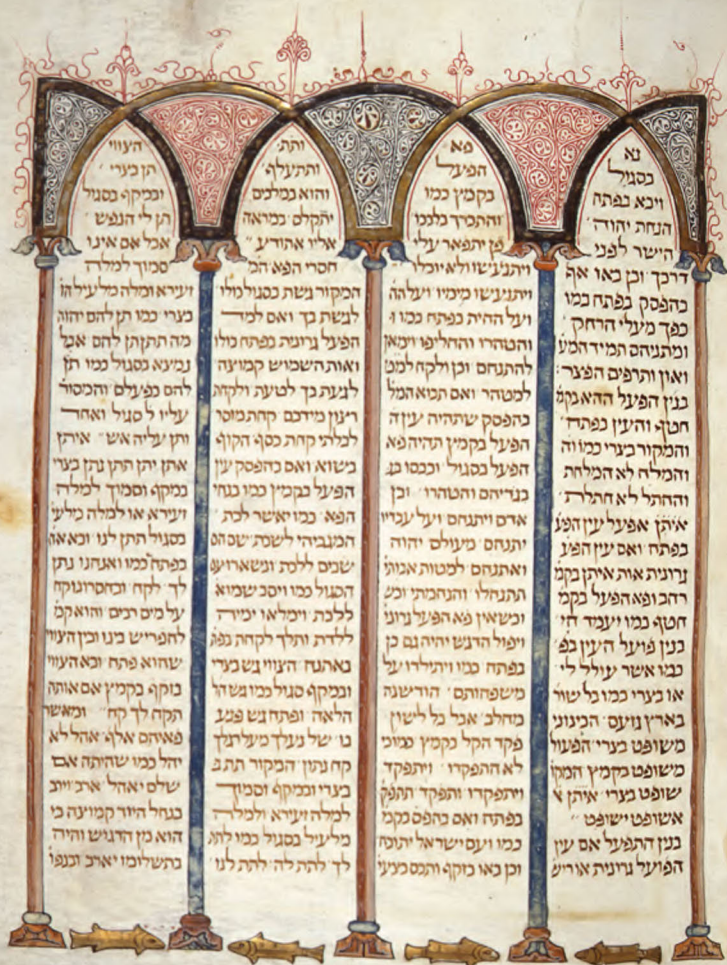 נא
בסגול
ויבא בפתח
הנחת יהוה
הישר לפני
דרכך וכן באו אף
בהפסק בפתח כמו
הפך מעלי הרחק
ומתניהם תמיד המע
ואון ותרפים הפצר
בנין הפעל ההא בקמ
חטף והעין בפתח
והמקור בצרי כמו וה
והמלח לא המלחת
והחתל לא חתלת
איתן אפעל עין הפע
בפתח ואם עין הפע
גרונית אות איתן בקמ
רחב ופא הפעל בקמ
חטף כמו יעמד חי
בנין פועל העין בפ
כמו אשר עולל לי
או בצרי כמו כל שור
בארץ נזעם הבינוני
משופט בצרי הפעול
משופט בקמץ המקו
שופט בצרי איתן א
אשופט ישופט
בנין התפעל אם עין
הפועל גרונית או ריש
פא
הפעל
בקמץ כמו
והתברך בלבבו
פן יתפאר עלי
ויתגעשו ולא יוכלו
ויתגעשו מימיו ועל הה
ועל ההיה בפתח כמו ו
והטהרו והחליפו וימאן
להתנחם וכן ולקח למט
למטהר ואם תבוא המל
בהפסק שתהיה עין ה
הפעל בקמץ תהיה פא
הפעל בסגול וכבסו בג
בגדיהם והטהרו וכן
אדם ויתנחם ועל עבדיו
יתנחם מעולם יהוה
ואתנחם למטות אבותי
תתנחלו והנחמתי וכש
וכשאין פא הפעל גרוני
ויפול הדגש יהיה גם כן
בפתח כמו ויתילדו על
משפחותם הודשנה
מחלב אבל כל לישון
פקד הקל בקמץ כמוכ
לא התפקדו ויתפקד
ויתפקדו ותפקד תתפק
בפתח ואם בהפס בקמ
כמו ועם ישראל יתוכח
וכן באו בזקף ותכס
ותת
ותתעלף
והוא במלכים
יתקלס במראה
אליו אתודע
חסרי הפא המ
המקור גשת בסגול כולו
לגשת בך ואם למד
הפעל גרונית בפתח כולו
ואות השמוש קמוצה
לגעת בך לטעת ולקחת
ריגון מידכם קחת מוסר
לבלתי קחת כסף הקוף
בשוא ואם בהפסק עין
הפעל בקמץ כמו בגחי
הפא כמו יאשר לכת
המגביהי לשבת שם הם
שבים ללכת ונשארו עם
הסגול כמו ויסב שמוא
ללכת וימלאו ימיה
ללדת ותלך לקחת בפת
באתנח הצווי גש בצרי
ובמקף סגול כמו גש הל
הלאה ופתח גש פגע
בו של נעלך מעל רגלך
קח נתון המקור תת ב
בצרי ובמקף וסמוך
למלה זעירא ולמלה
מלעיל בסגול כמו לתת
לך לתת לה לתת לנו
הצווי
תן בצרי
ובמקף בסגול
תן לי הנפש
אבל אם אינו
סמוך למלה
זעירא ומלה מלעיל הוא
בצרי כמו תן להם יהוה
מה תתן תן להם אבל
נמצא בסגול כמו תן
להם כפעלם והמסור
עליו ל סגול ואחד
ותן עליה אש איתן
אתן יתן תתן נתן בצרי
במקף וסמוך למלה
זעירא או למלה מלעי
בסגול תתן לנו ובא או
בפתח כמו ואנחנו נתן
לך לקח ובחסרונו קח
על מים רבים והוא קמ
להפריש בינו ובין הצווי
שהוא פתח ובא הצווי
בזקף בקמץ אם אותה
תקח לך קח ומאשר
פאיהם אלף אהל לא
יהל כמו שהיתה אם
שלם יאהל ארב וירב
בנחל היוד קמוצה כי
הוא מן הדגיש והיה
בתשלומו יארב ובנפו